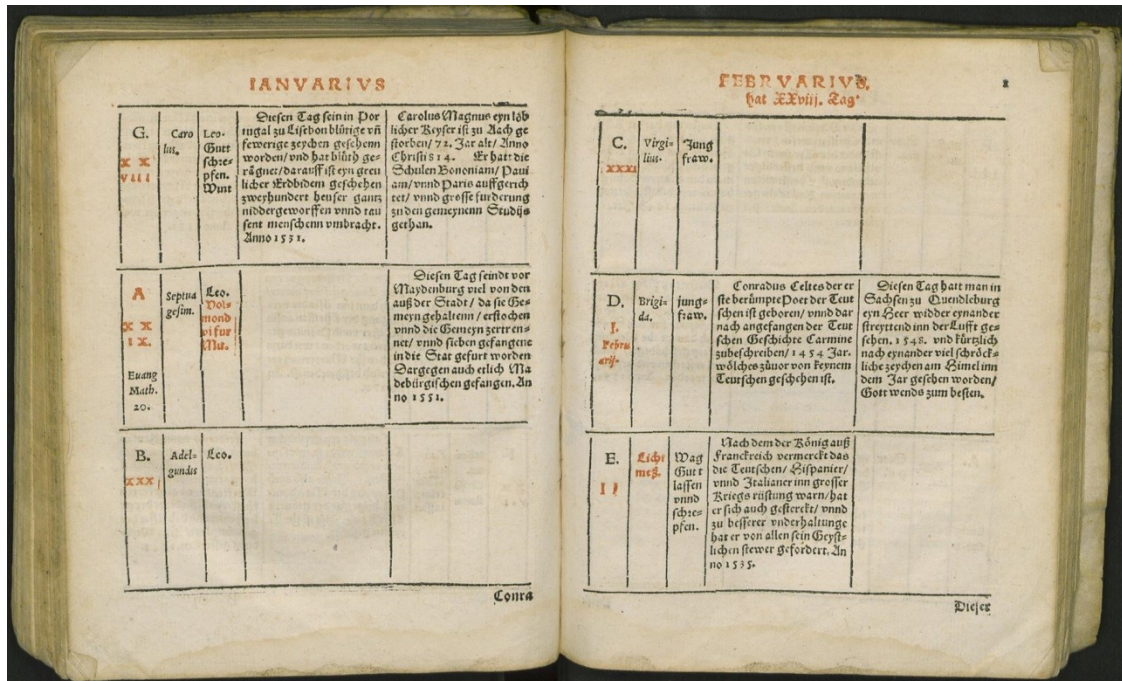 IANVARIVS
G.
X X
VIII
Caro
lus.
Leo.
Gutt
schre-
pfen.
Wint
Diesen Tag sein in Por
tugal zu Lisebon blůtige vñ
fewerige zeychen gesehenn
worden/ vnd hat blůth ge-
rägnet/ darauff ist eyn greu
licher Erdbidem geschehen
zweyhundert heuser gantz
niddergeworffen vnnd tau
sent menschenn vmbracht.
Anno 1531.
Carolus Magnus eyn löb
licher Keyser ist zu Aach ge
storben/ 72. Jar alt/ Anno
Christi 814. Er hatt die
Schulen Bononiam/ Paui
am/ vnnd Paris auffgerich
tet/ vnnd grosse furderung
zu den gemeynenn Studijs
gethan.
A
X X
I X.
Euang
Math.
20.
Septua
gesim.
Leo.
Vol-
mond
vi fur
Mit.
Diesen Tag seindt vor
Maydenburg viel von den
auß der Stadt/ da sie Ge-
meyn gehaltenn/ erstochen
vnnd die Gemeyn zertren-
net/ vnnd sieben gefangene
in die Stat gefurt worden
Dargegen auch etlich Ma
debürgischen gefangen. An
no 1551.
B.
XXX
Adel-
gundis
Leo.
Conra
FEBRVARIVS.
hat XXviij. Tag.
C.
XXXI
Virgi-
lius.
Jung
fraw.
D.
I.
Febru
arij.
Brigi-
da.
jung-
fraw.
Conradus Celtes der er
ste berůmpte Poet der Teut
schen ist geboren/ vnnd dar
nach angefangen der Teut
schen Geschichte Carmine
zubeschreiben/ 1454 Jar.
wölches zůuor von keynem
Teutschen geschehen ist.
Diesen Tag hatt man in
Sachsen zu Quendleburg
eyn Heer widder eynander
streyttend inn der Lufft ge-
sehen. 1548. vnd kürtzlich
nach eynander viel schröck-
liche zeychen am Himel inn
dem Jar gesehen worden/
Gott wends zum besten.
E.
II
Licht
meß.
Wag
Gutt
lassen
vnnd
schre-
pfen.
Nach dem der König auß
Franckreich vermerckt das
die Teutschen/ Hispanier/
vnnd Italianer inn grosser
Kriegs rüstung warn/ hat
er sich auch gesterckt/ vnnd
zu besserer vnderhaltunge
hat er von allen sein Geyst-
lichen stewer gefordert. An
no 1535.
Dieser